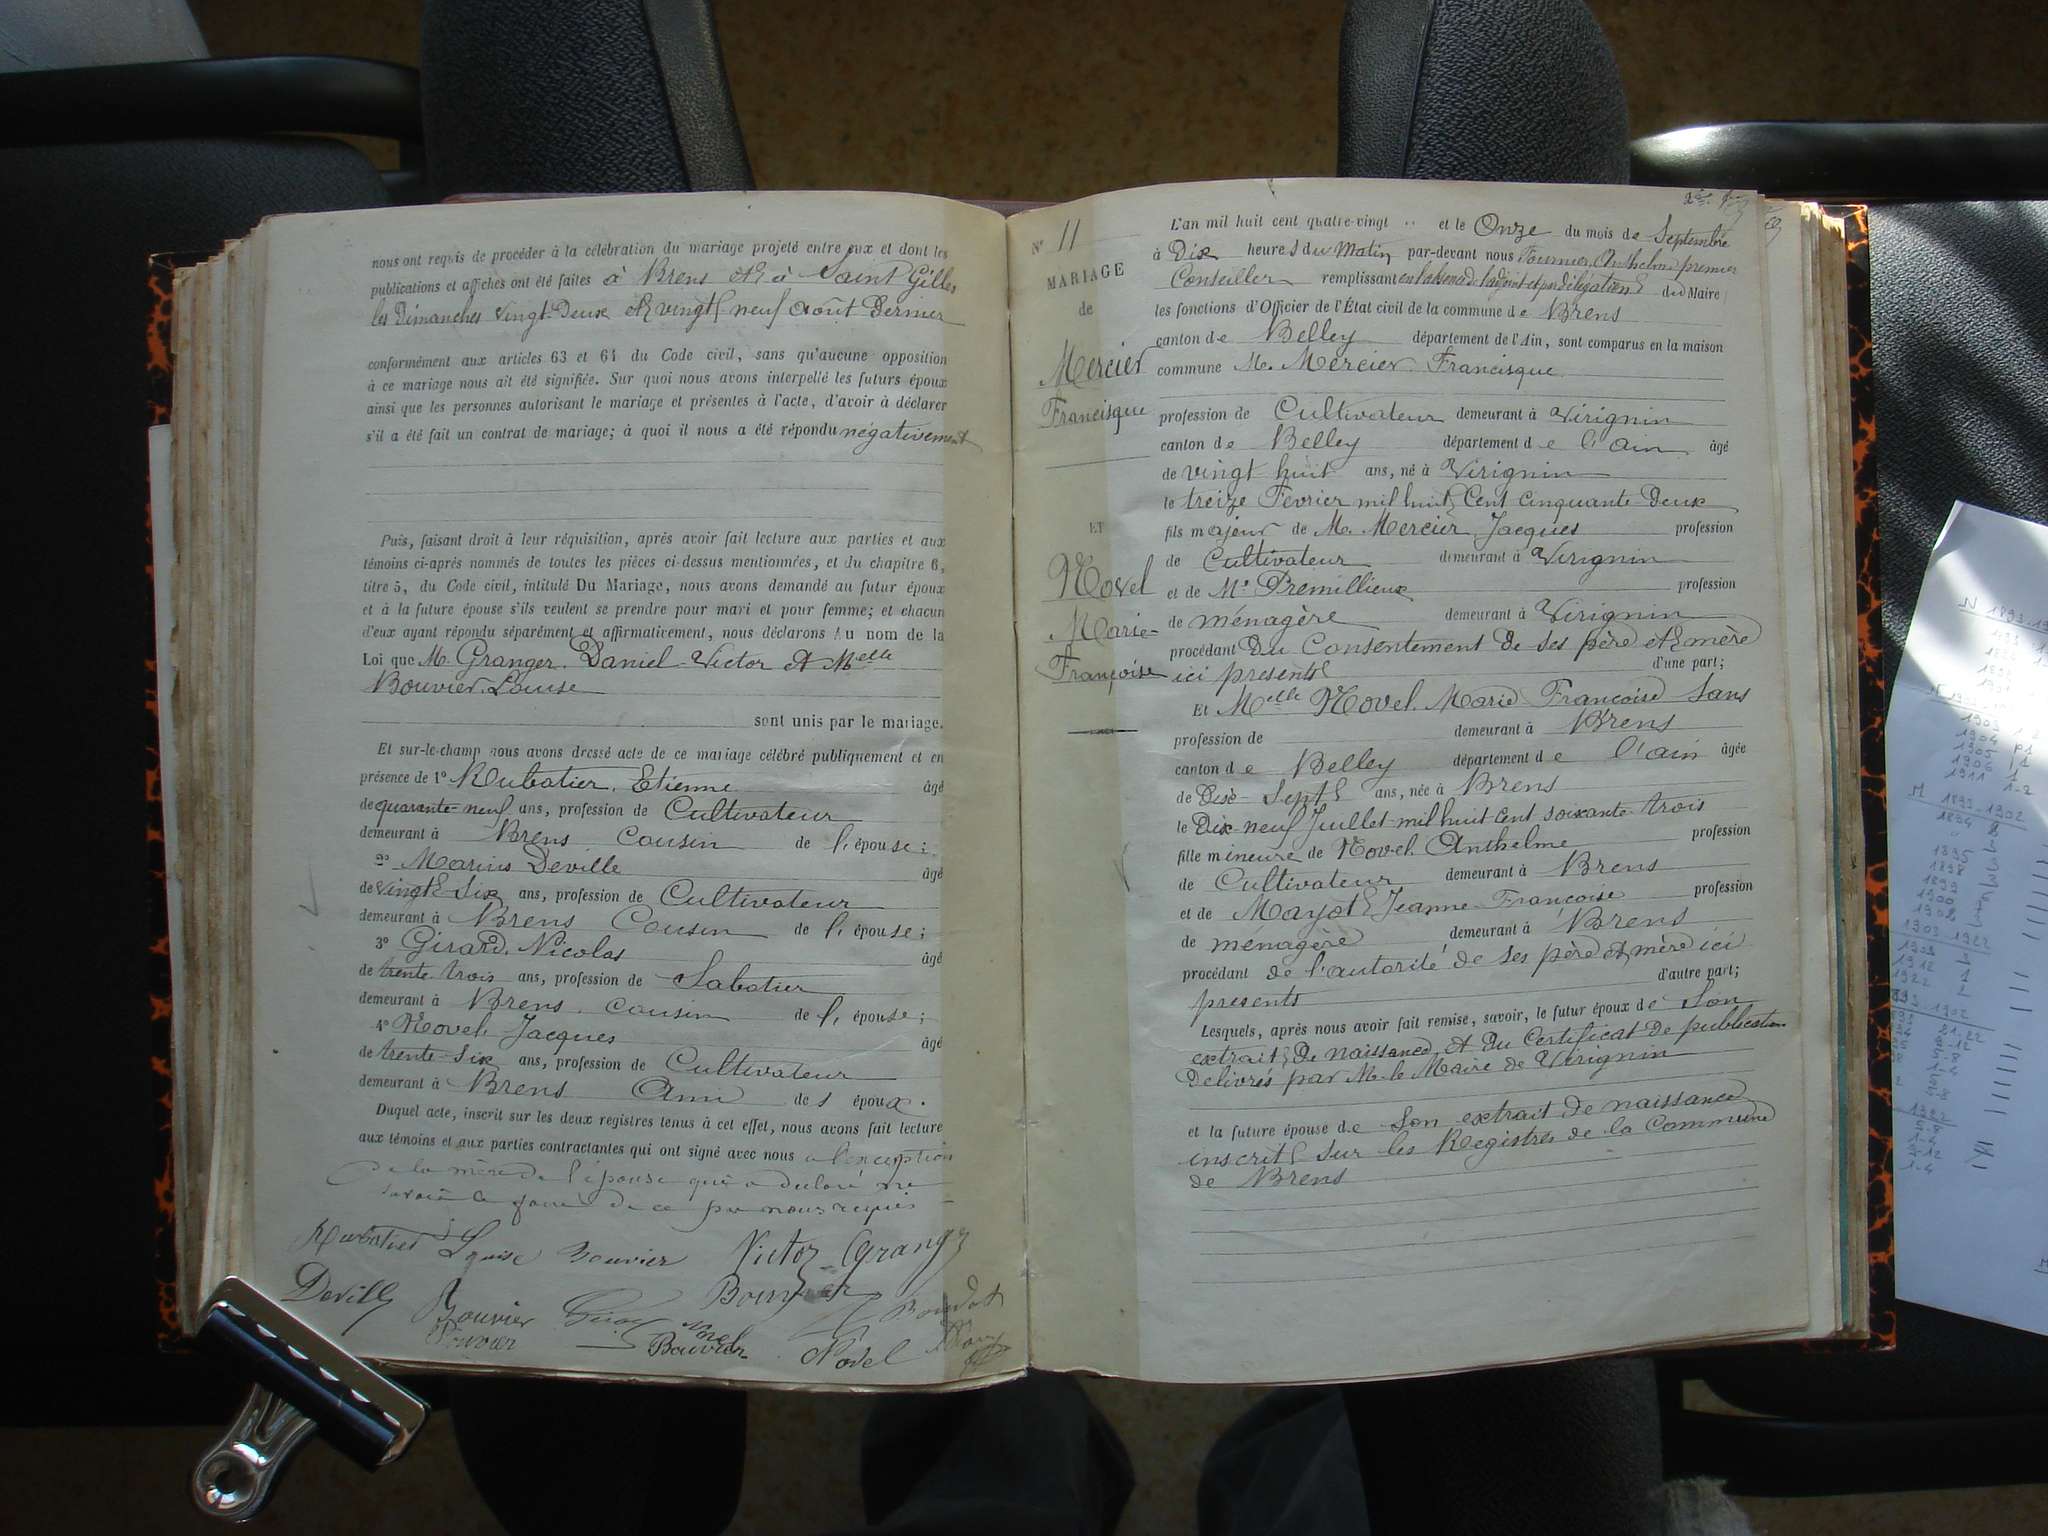 nous ont requis de procéder à la célébration du mariage projeté entre eux et dont les
publications et affiches ont été faites à Brens et à Saint Gilles
les Dimanches Vingt-Deux et vingt neuf août Dernier
conformément aux articles 63 et 64 du Code civil, sans qu'aucune opposition
à ce mariage nous ait été signifiée. Sur quoi nous avons interpellé les futurs époux
ainsi que les personnes autorisant le mariage et présentes à l'acte, d'avoir à déclarer
s'il a été fait un contrat de mariage; à quoi il nous a été répondu négativement
Puis, faisant droit à leur réquisition, après avoir fait lecture aux parties et aux
témoins ci-après nommés de toutes les pièces ci-dessus mentionnées, et du chapitre 6,
titre 5, du Code civil, intitulé Du Mariage, nous avons demandé au futur époux
et à la future épouse s'ils veulent se prendre pour mari et pour femme; et chacun
d'eux ayant répondu séparément et affirmativement, nous déclarons au nom de la
Loi que M. Granger. Daniel-Victor et Melle
Bouvier. Louise
sont unis par le mariage.
Et sur-le-champ nous avons dressé acte de ce mariage célébré publiquement et en
présence de 1° Rubatier. Etienne âgé
de quarante-neuf ans, profession de Cultivateur
demeurant à Brens cousin de l'épouse;
2° Marius Deville âgé
de vingt six ans, profession de Cultivateur
demeurant à Brens Cousin de l'épouse;
3° Girard. Nicolas âgé
de trente-trois ans, profession de Sabotier
demeurant à Brens. cousin de l'épouse;
4° Novel. Jacques âgé
de trente-six ans, profession de Cultivateur
demeurant à Brens Ami des époux.
Duquel acte, inscrit sur les deux registres tenus à cet effet, nous avons fait lecture
aux témoins et aux parties contractantes qui ont signé avec nous a l'exception
de la mère de l'épouse qui a déclaré ne
savoir le faire de ce par nous requis
Rubatier Louise Bouvier Victor Granger
Deville Bouvier Bouvier Boudot
Bouvier Novel
Bouvier Novel
N° 11
MARIAGE
de
Mercier
Francisque
ET
Novel
Marie-
Françoise
L'an mil huit cent quatre-vingt et le Onze du mois de Septembre
à Dix heures du Matin par-devant nous Fournier Anthelme premier
Conseiller remplissant en l'absence de l'adjoint et par délégation du Maire
les fonctions d'Officier de l'État civil de la commune de Brens
canton de Belley département de l'Ain, sont comparus en la maison
commune M. Mercier. Francisque
profession de Cultivateur demeurant à Virignin
canton de Belley département de l'ain âgé
de vingt huit ans, né à Virignin
le treize Fevrier mil huit Cent cinquante Deux
fils majeur de M. Mercier Jacques profession
de Cultivateur demeurant à Virignin
et de Me Premillieux profession
de ménagère demeurant à Virignin
procédant Du Consentement de ses père et mère
ici présents d'une part;
Et Melle Novel. Marie Françoise Sans
profession de demeurant à Brens
canton de Belley département de l'ain âgée
de Dix-Sept ans, née à Brens
le Dix-neuf Juillet mil huit cent soixante-trois
fille mineure de Novel. Anthelme profession
de Cultivateur demeurant à Brens
et de Mayot Jeanne-Françoise profession
de ménagère demeurant à Brens
procédant de l'autorité de ses père et mère ici
présents d'autre part;
Lesquels, après nous avoir fait remise, savoir, le futur époux de Son
extrait De naissance et du Certificat De publication
Délivrés par M. le Maire de Virignin
et la future épouse de Son extrait de naissance
inscrit sur les Registres de la Commune
de Brens